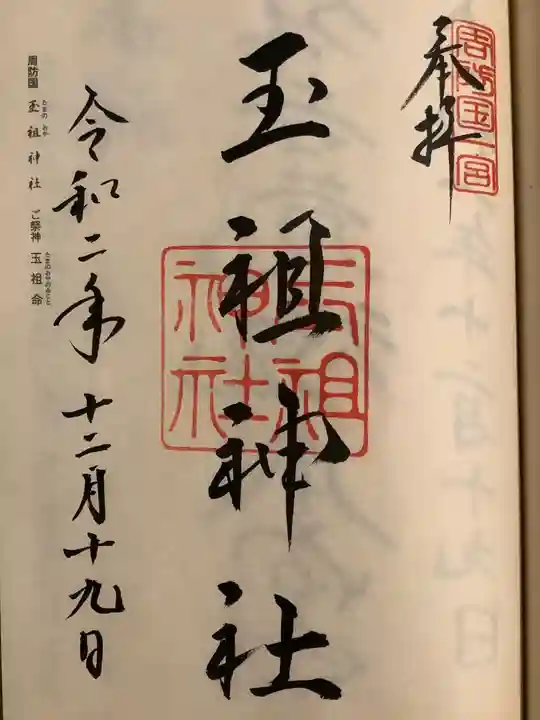 周防国一宮
奉拝
玉祖神社
玉祖神社
令和二年 十二月十九日
周防国 玉祖神社 ご祭神 玉祖命
たまの おや
たまのおやのみこと